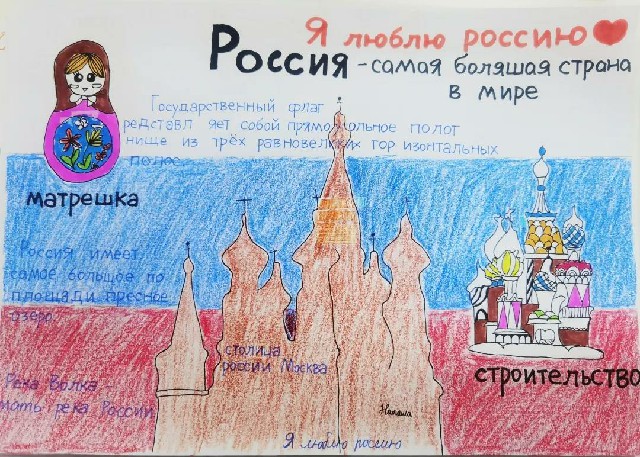 Я люблю россию
Россия -самая боляшая страна
в мире
Государственный флаг
редставл яет собой полот
нище из трёх равновеликих гор изонтальных
полос
матрешка
Россия имеет
самое большое по
площади пресное
озеро.
столица
россии Москва
строительство
Река Волка -
мать река России
Наташа
Я люблю россию